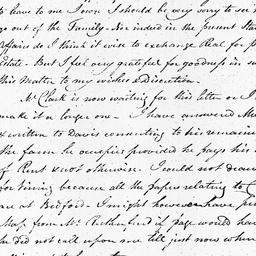 to leave to me I own I should be very sorry to se
go out of the Family. Nor indeed in the present Stat
Affairs do I think it wise to exchange Real for p
Estate. But I feel very grateful for goodness in su
this Matter to my wishes & Discretion.
Mr Clark is now waiting for this letter or I
make it a longer one. I have answered Me
& written to Davis consenting to his remaine
the farm he occupies provided he pays his
of Rent & not otherwise. I could not draw
for him because all the papers relating to
are at Bedford. I might however have pu
Map from Mr Rutherfurd if page would have
he did not call upon me till just now when